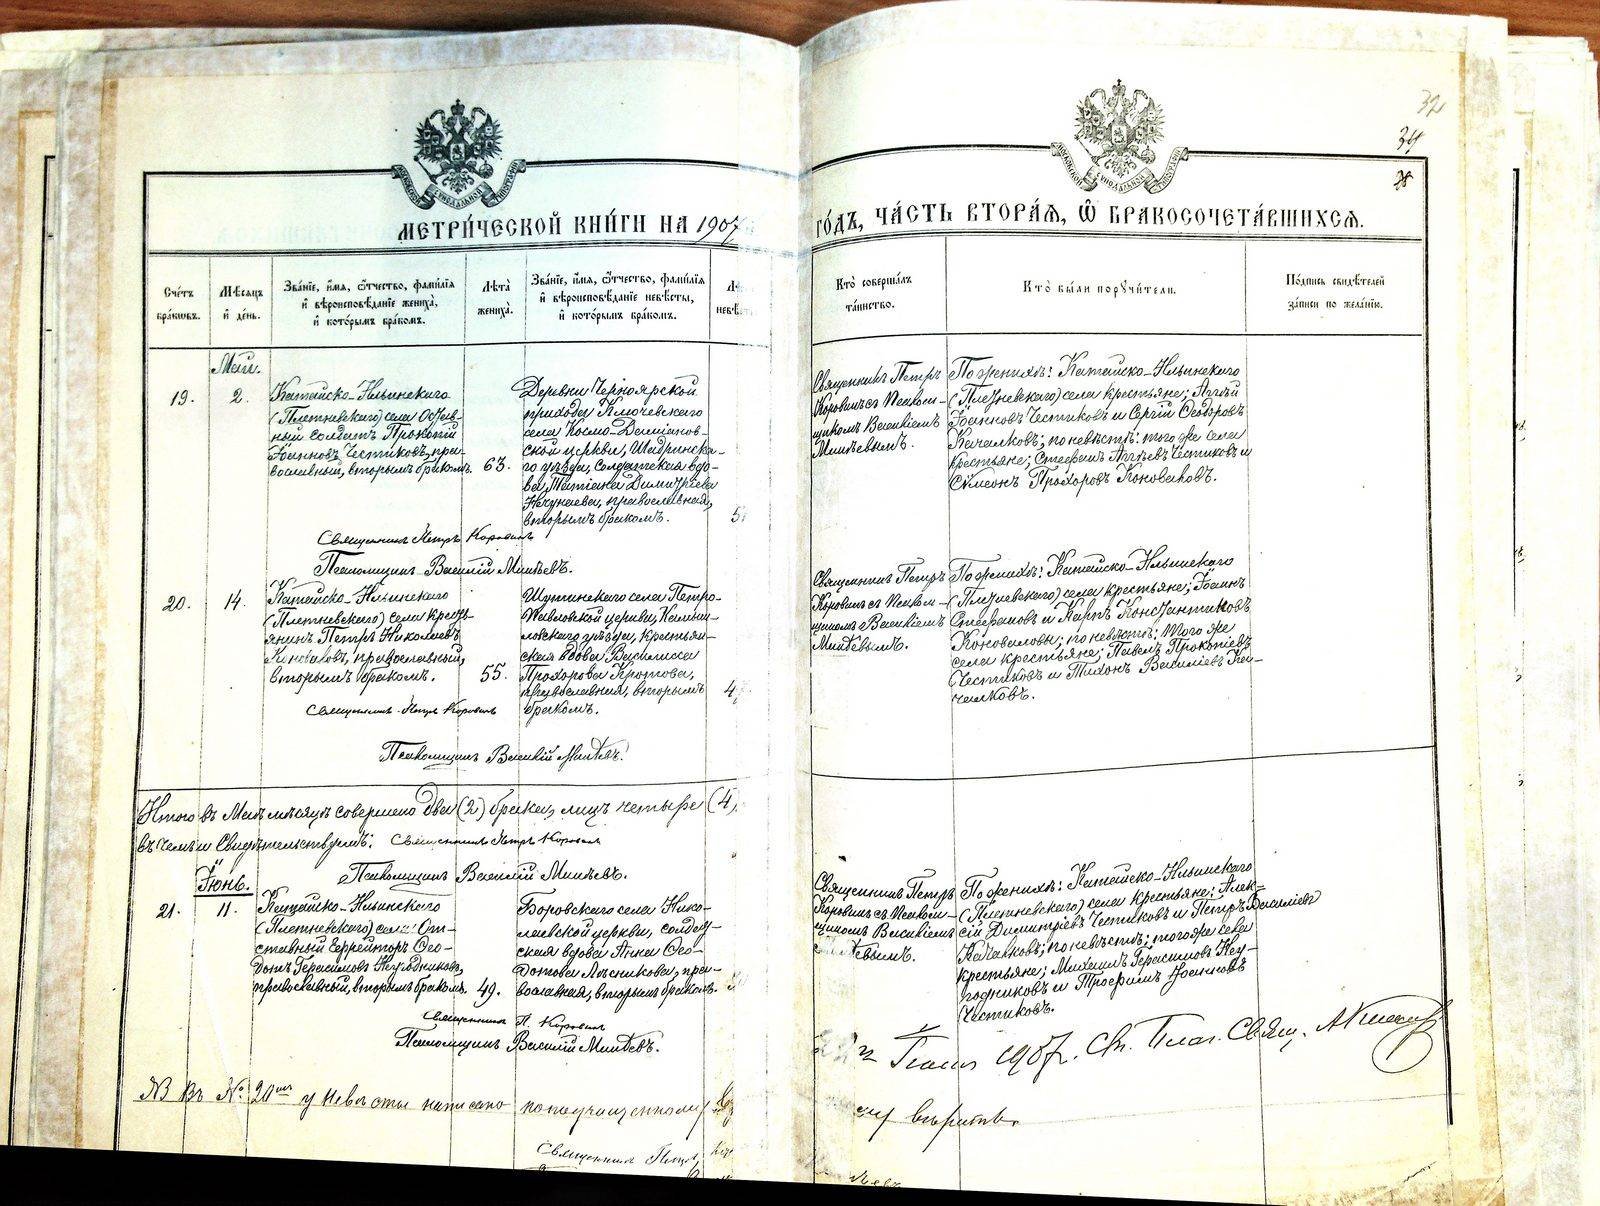 32
34
МОСКОВСКОЙ СѴНОДАЛЬНОЙ ТИПОГРАФІИ
МОСКОВСКОЙ СѴНОДАЛЬНОЙ ТИПОГРАФІИ
МЕТРИ́ЧЕСКОЙ КНИ́ГИ НА 1907
ГО́ДЪ, ЧА́СТЬ ВТОРА́Ѧ, Ѽ БРАКОСОЧЕТА́ВШИХСѦ.
Сче́тъ бра́ковъ.
Мѣ́сяцъ и҆ де́нь.
Зва́нїе, и҆́мя, ѻ҆́тчество, фамѝлїя и҆ вѣроисповѣ́данїе жениха̀, и҆ кото́рымъ бра́комъ.
Лѣ́та жениха̀.
Зва́нїе, и҆́мя, ѻ҆́тчество, фамѝлїя и҆ вѣроисповѣ́данїе невѣ́сты, и҆ кото́рымъ бра́комъ.
Кто̀ соверша́лъ та́инство.
Кто̀ бы́ли порꙋчи́тели.
По́дпись свидѣ́телей за́писи по жела́нїю.
Май.
19.
2.
Катайско-Ильинскаго
(Плетневскаго) села Отстав-
ный солдатъ Прокопій
Іоанновъ Честиковъ, пра-
вославный, вторымъ бракомъ.
63.
Деревни Черноярской
прихода Ключевскаго
села Космо-Даміанов-
ской церкви, Шадринска-
го уѣзда, солдатская вдо-
ва, Татіана Димитріева
православная,
вторымъ бракомъ.
5
Священникъ Петръ
Коровинъ съ Псалом-
щикомъ Василіемъ
Минѣевымъ.
По женихѣ: Катайско-Ильинскаго
(Плетневскаго) села крестьяне; Аггѣй
Іоанновъ Честиковъ и Сергій Ѳеодоровъ
Качалковъ; по невѣстѣ: того же села
крестьяне; Стефанъ Аггѣевъ Честиковъ и
Сѵмеонъ Прохоровъ Коноваловъ.
Священникъ Петръ Коровинъ
Псаломщикъ Василій Минѣевъ.
20.
14.
Катайско-Ильинскаго
(Плетневскаго) села кресть-
янинъ Петръ Николаевъ
Коноваловъ, православный,
вторымъ бракомъ.
55.
Шутинскаго села Петро-
Павловской церкви, Камыш-
ловскаго уѣзда, крестьян-
ская вдова Василисса
Прохорова Кротова,
православная, вторымъ
бракомъ.
4
Священникъ Петръ
Коровинъ съ Псалом-
щикомъ Василіемъ
Минѣевымъ.
По женихѣ: Катайско-Ильинскаго
(Плетневскаго) села крестьяне; Іоаннъ
Стефановъ и Карпъ Константиновъ
Коноваловы; по невѣстѣ: того же
села крестьяне; Павелъ Прокопіевъ
Честиковъ и Тихонъ Василіевъ Ка-
чалковъ.
Священникъ Петръ Коровинъ
Псаломщикъ Василій Минѣевъ.
Итого въ Маѣ мѣсяцѣ совершено два (2) брака, лицъ четыре (4),
въ чемъ и свидѣтельствуемъ: Священникъ Петръ Коровинъ
Псаломщикъ Василій Минѣевъ.
Іюнь.
21.
11.
Катайско-Ильинскаго
(Плетневскаго) села От-
ставный Ефрейторъ Ѳео-
дотъ Герасимовъ Неугодниковъ,
православный, вторымъ бракомъ.
49.
Боровскаго села Нико-
лаевской церкви, солдат-
ская вдова Анна Ѳео-
дотова Лѣсникова, пра-
вославная, вторымъ бракомъ.
Священникъ Петръ
Коровинъ съ Псалом-
щикомъ Василіемъ
Минѣевымъ.
По женихѣ: Катайско-Ильинскаго
(Плетневскаго) села крестьяне: Алек-
сій Димитріевъ Честиковъ и Петръ Василіевъ
Качалковъ; по невѣстѣ; того же села
крестьяне; Михаилъ Герасимовъ Неу-
годниковъ и Трофимъ Іоанновъ
Честиковъ.
Священникъ П. Коровинъ
Псаломщикъ Василій Минѣевъ.
1907. Св.
NB Въ № 20мъ у невѣсты написано по подчищенному
вѣрить.
Священникъ Петръ